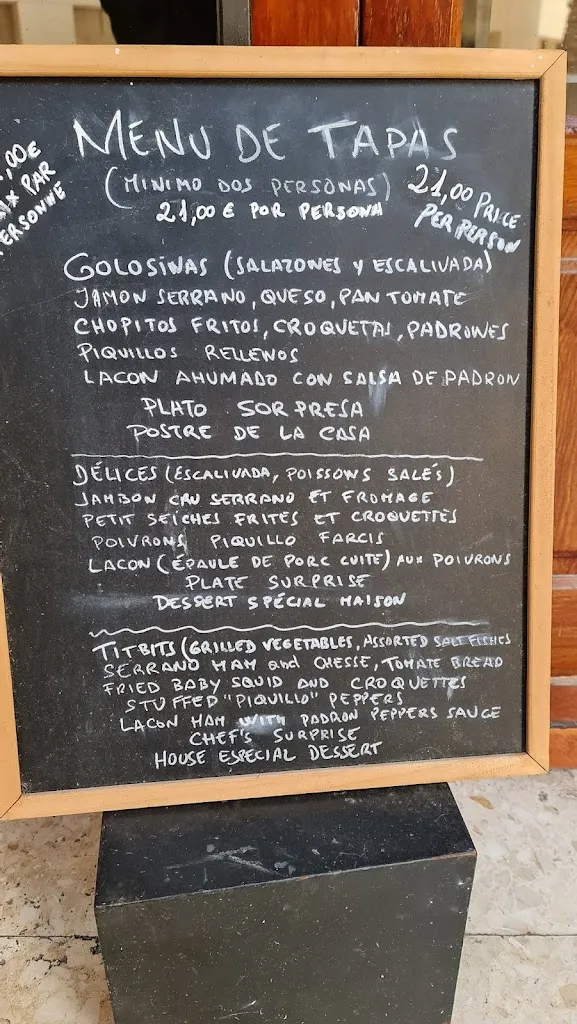 MENU DE TAPAS
(MINIMO DOS PERSONAS)
21,00 € POR PERSONA
,00€
PAR
ERSONNE
21,00 PRICE
PER PERSON
GOLOSINAS (SALAZONES Y ESCALIVADA)
JAMON SERRANO, QUESO, PAN TOMATE
CHOPITOS FRITOS, CROQUETAS, PADRONES
PIQUILLOS RELLENOS
LACON AHUMADO CON SALSA DE PADRON
PLATO SORPRESA
POSTRE DE LA CASA
DÉLICES (ESCALIVADA, POISSONS SALÉS)
JAMBON CRU SERRANO ET FROMAGE
PETIT SEICHES FRITES ET CROQUETTES
POIVRONS PIQUILLO FARCIS
LACON (ÉPAULE DE PORC CUITE) AUX POIVRONS
PLATE SURPRISE
DESSERT SPÉCIAL MAISON
TITBITS (GRILLED VEGETABLES, ASSORTED SALT FISHES
SERRANO HAM and CHESSE, TOMATE BREAD
FRIED BABY SQUID AND CROQUETTES
STUFFED "PIQUILLO" PEPPERS
LACON HAM WITH PADRON PEPPERS SAUCE
CHEF'S SURPRISE
HOUSE ESPECIAL DESSERT